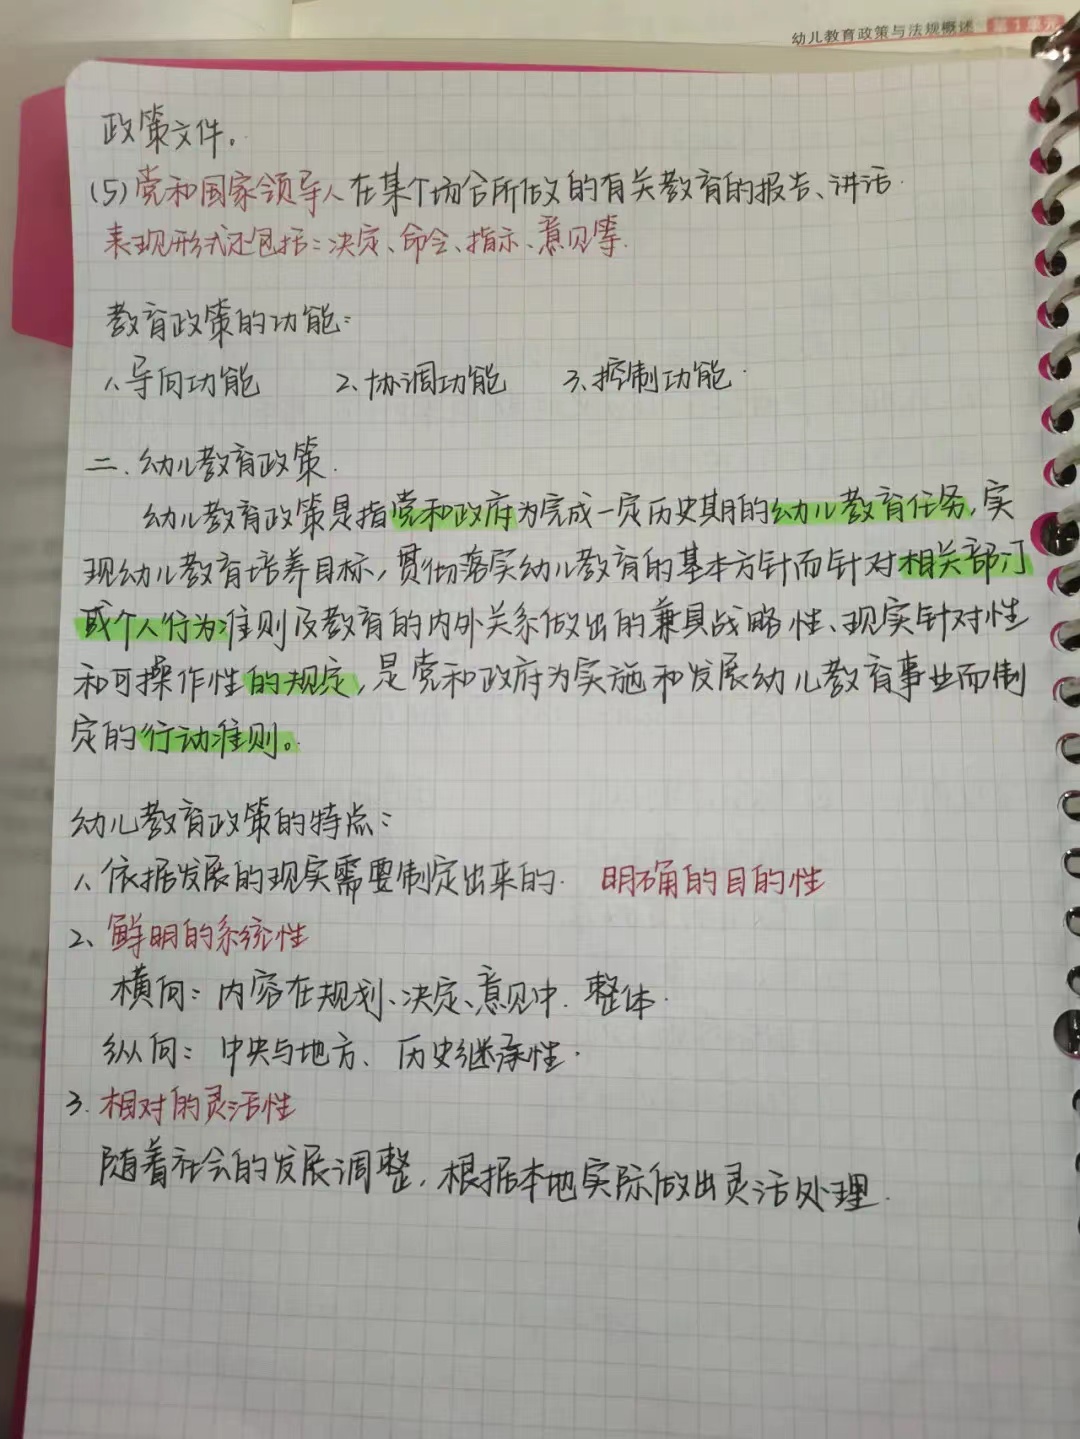 幼儿教育政策与法规概述 第1单元
政策文件。
(5)党和国家领导人在某个场合所做的有关教育的报告、讲话.
表现形式还包括：决定、命令、指示、意见等.
教育政策的功能：
1、导向功能 2、协调功能 3、控制功能.
二、幼儿教育政策.
幼儿教育政策是指党和政府为完成一定历史期的幼儿教育任务，实
现幼儿教育培养目标，贯彻落实幼儿教育的基本方针而针对相关部门
或个人行为准则及教育的内外关系做出的兼具战略性、现实针对性
和可操作性的规定，是党和政府为实施和发展幼儿教育事业而制
定的行动准则。
幼儿教育政策的特点：
1、依据发展的现实需要制定出来的. 明确的目的性
2、鲜明的系统性
横向：内容在规划、决定、意见中. 整体.
纵向：中央与地方、历史继承性.
3. 相对的灵活性
随着社会的发展调整，根据本地实际做出灵活处理.